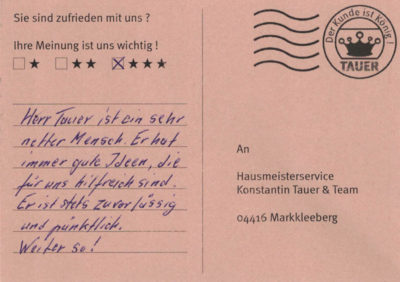 Sie sind zufrieden mit uns ?
Ihre Meinung ist uns wichtig !
Herr Tauer ist ein sehr
netter Mensch. Er hat
immer gute Ideen, die
für uns hilfreich sind.
Er ist stets zuverlässig
und pünktlich.
Weiter so!
Der Kunde ist König !
TAUER
An
Hausmeisterservice
Konstantin Tauer & Team
04416 Markkleeberg